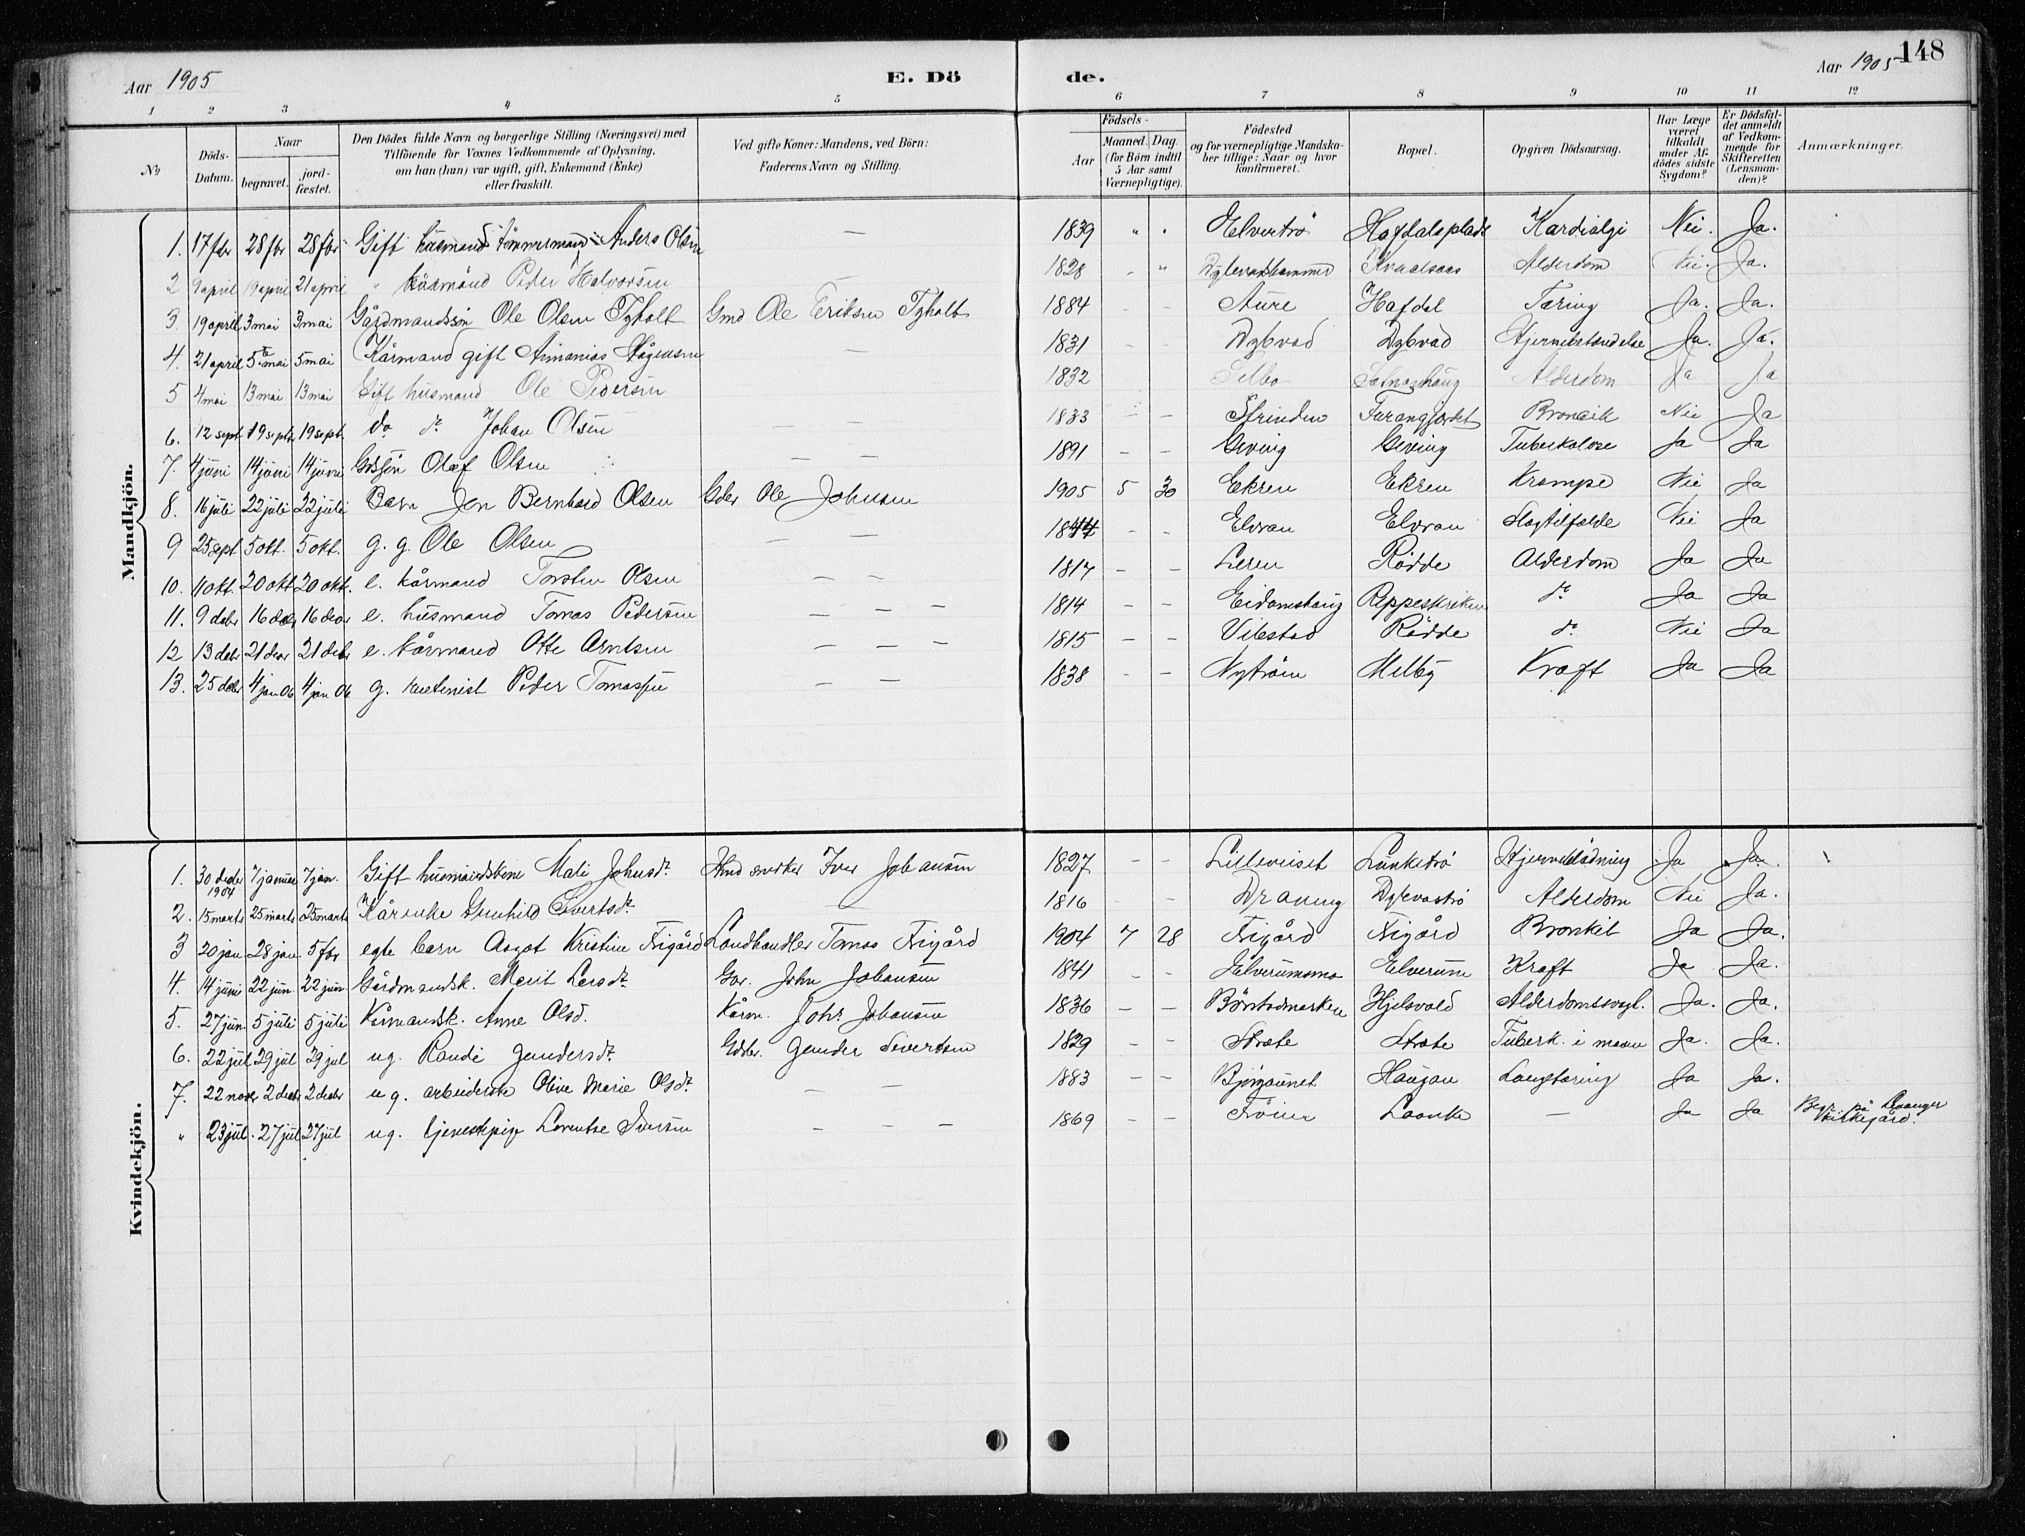 148
Aar 1905 E. Dö de. Aar 1905
1 2 3 4 5 6 7 8 9 10 11 12
No
Döds-Datum.
Naar
begravet.
jordfæstet.
Den Dödes fulde Navn og borgerlige Stilling (Næringsvei) med
Tilföiende for Voxnes Vedkommende af Oplysning,
om han (hun) var ugift, gift, Enkemand (Enke)
eller fraskilt.
Ved gifte Koner: Mandens, ved Börn:
Faderens Navn og Stilling.
Födsels-
Aar
Maaned. Dag.
(for Börn indtil
5 Aar samt
Værnepligtige).
Födested
og for værnepligtige Mandskaber tillige: Naar og hvor
konfirmeret.
Bopæl.
Opgiven Dödsaarsag.
Har Læge
været
tilkaldt
under Afdödes sidste
Sygdom?
Er Dödsfaldet anmeldt
af Vedkommende for
Skifteretten
(Lensmanden)?
Anmærkninger.
Mandkjön.
1. 17 fbr 28 fbr 28 fbr Gift husmand Tömmermand Anders Olsen — 1839 " " Elvertrö Hofdalsplads Kardialgi Nei. Ja.
2 9 april 19 april 21 april " husmand Peder Halvorsen — — 1828 - " Kvaalsaas Alderdom Nei. Ja.
3 19 april 3 mai 3 mai Gårdmandssön Ole Olsen Tyholt Gmd Ole Eriksen Tyholt 1884 - - Aure Hofdal Tæring Ja. Ja.
4. 21 april 5 mai 5 mai Kårmand gift Ananias Hågensen — 1831 - - Dybvad Dybvad Hjernebetændelse Ja. Ja.
5 4 mai 13 mai 13 mai Gift husmand Ole Pedersen 1832 Selbo Alderdom Ja Ja
6. 12 sept 19 sept 19 sept do do Johan Olsen — — 1833 - - Strinden Nei Ja
7 4 juni 14 juni 14 juni Gdssön Olaf Olsen — — 1891 - - Geving Geving Tuberkulose Ja Ja
8. 16 juli 22 juli 22 juli Barn Jon Bernhard Olsen Gdbr Ole Johnsen 1905 5 30 Ekren Ekren Krampe Nei Ja
9 25 sept 5 okt. 5 okt. g. g. Ole Olsen — — 1844 - - Elvran Elvran Slagtilfælde Nei Ja
10. 11 okt. 20 okt 20 okt. e. kårmand Torsten Olsen - - 1817 - - Leren Rödde Alderdom Ja Ja
11. 9 debr 16 decbr 16 decbr e. husmand Tomas Pedersen — — — 1814 - - Eidamshaug Reppeskriken do Ja Ja
12 13 debr 21 decbr 21 debr e. kårmand Otte Arntsen — — — 1815 - - Vikstad Rödde do Nei Ja
13. 25 debr 4 jan 06 4 jan 06 g. Peder Tomassen — — 1838 - - Nyström Melby Kræft Ja Ja
Kvindekjön.
1. 30 decbr 1904 7 januar 7 jan. Gift husmandskone Mali Johnsdr Hmd snedker Iver Johansen 1827 - - Lunketrö Ja Ja.
2. 15 marts 25 marts 25 marts Kårenke Gunhild Sivertsdr — 1816 - - Draung Dybvadtrö Alderdom Nei Ja.
3 20 jan 28 jan 5 fbr egte barn Aagot Kristine Frigård Landhandler Tomas Frigård 1904 7 28 Frigård Frigård Bronkit Ja Ja.
4. 14 juni 22 jun 22 jun Gårdmandsk. Merit Larsdr Gbr. John Johansen 1841 - - Elverumsmo Elverum Kræft Ja Ja.
5. 27 jun 5 juli 5 juli Kårmandsk. Anne Olsd. Kårm. Johs Johansen 1836 - - Börstadmarken Hjelsvold Alderdomssvagh. Ja. Ja.
6. 22 jul 29 jul 29 jul ug. Randi Gundersdr. Gdbr. Gunder Sivertsen 1829 - - Stræte Stræte Tuberk. i maven Ja. Ja.
7. 22 novbr 2 decbr 2 decbr ug. arbeiderske Oline Marie Olsdr — — 1883 - - Björgaunet Haugan Lungetæring Ja Ja.
" 23 jul. 27 jul 27 jul ug. tjenestepige Lorentse Iversen - - - 1869 - Fröier Laanke — Ja Ja Begr. på Levanger Kirkegård.